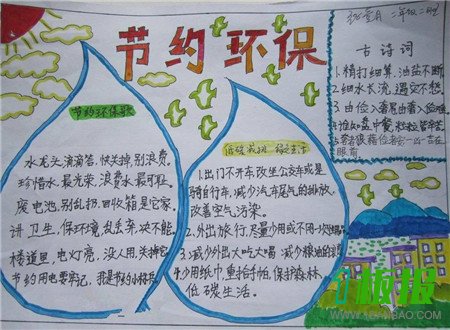 节约环保
二年级二班
古诗词
1.精打细算,油盐不断
2.细水长流,遇灾不愁
3.由俭入奢易由奢入俭难
4.谁知盘中餐,粒粒皆辛苦
眼前
节约环保歌
水龙头滴滴答,快关掉,别浪费。
珍惜水最光荣,浪费水最可耻。
废电池,别乱扔,回收箱是它家。
讲卫生,保环境,乱丢弃,决不能。
楼道里,电灯亮,没人用,关掉它
节约用电要牢记,我是节约小标兵。
1.出门不开车改坐公交车或是
骑自行车,减少汽车尾气的排放,
改善空气污染。
2.外出旅行,尽量少用或不用一次性
3.减少外出大吃大喝 减少粮油的
4.少用纸巾,重拾手帕,保护森林,
低碳生活。
板报